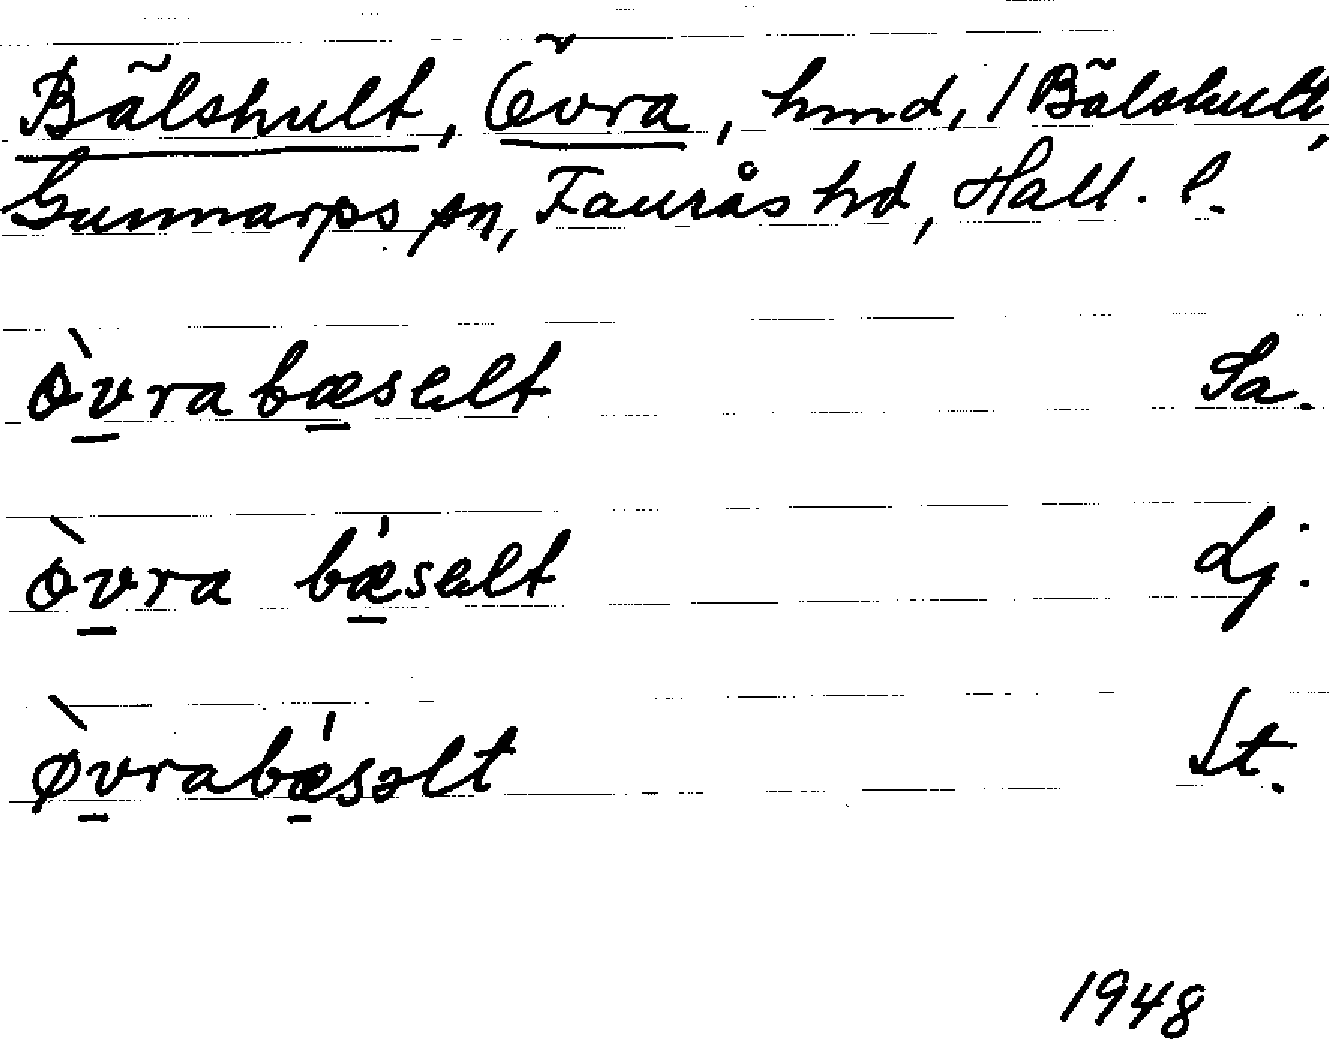 Bälshult, Övra, hmd, 1 Bälshult,
Gunnarps sn, Faurås hd, Hall. l.
òv̲ra bæ̲selt Sa.
òv̲ra bǽ̲selt Lj.
ø̀v̲rabǽ̲səlt St.
1948